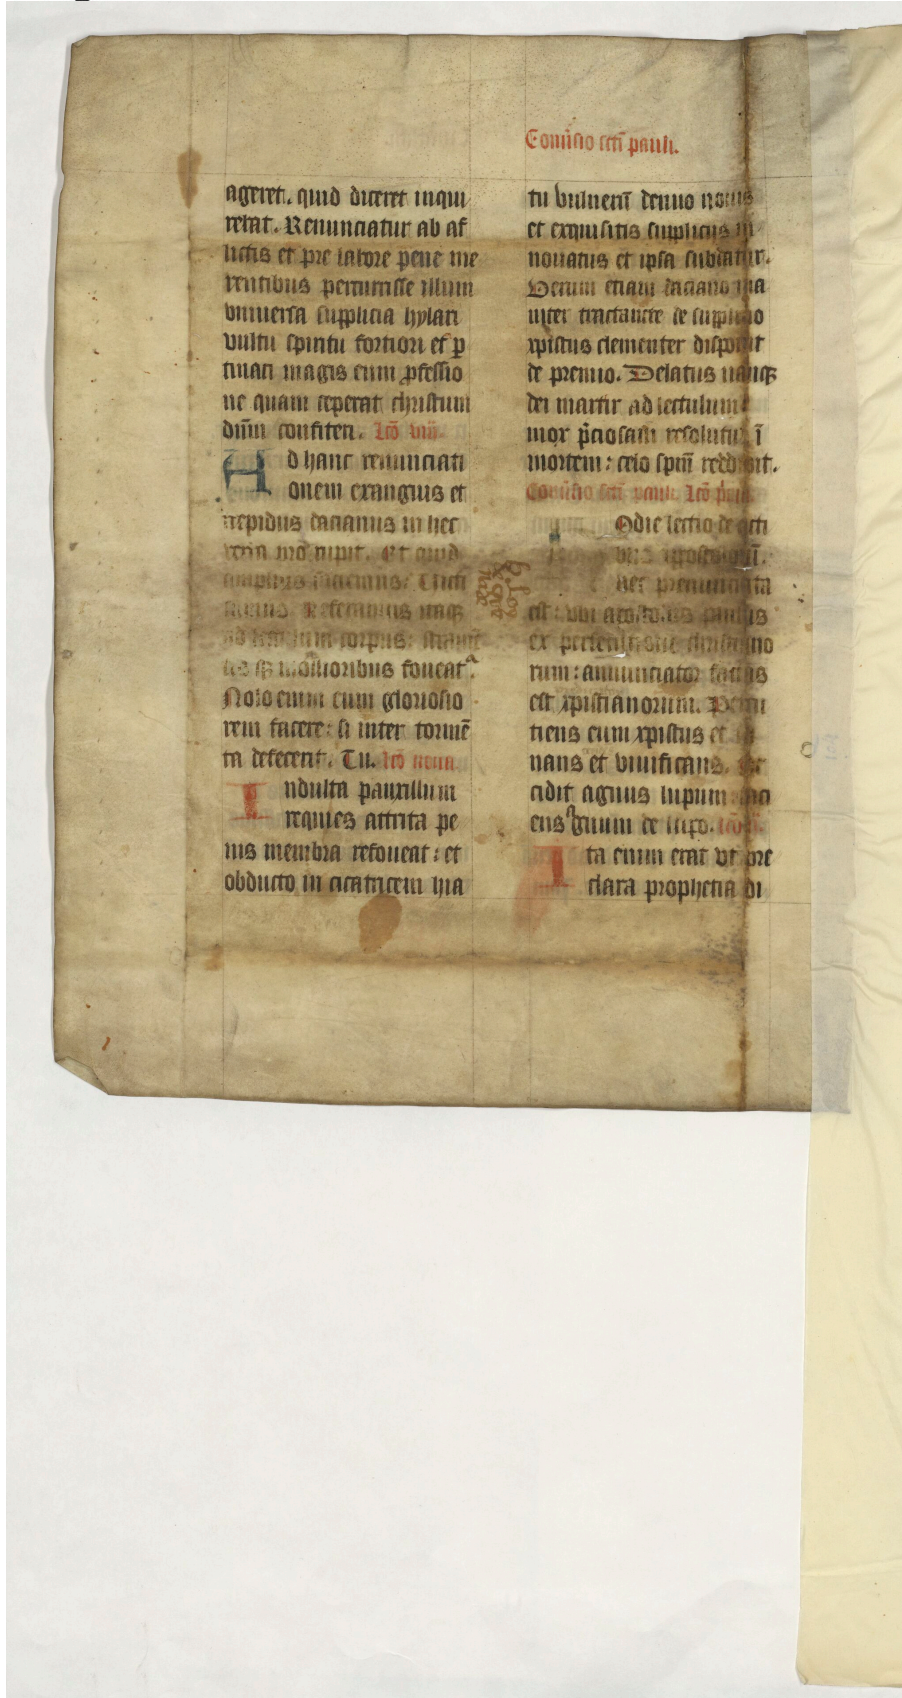 Conũsio scti pauli.
ageret. quid diceret inqui
rebat. Renunciatur ab af
flictis et pre labore pene me
rentibus percurrisse illum
vniuersa supplicia hylari
vultu spiritu fortiori et p
tinaci magis eum pfessio
ne quam ceperat christum
dn̄m confiteri. Lcō viij.
Ad hanc renunciati
onem exanguis et
trepidus dacianus in hec
Referamus
corpus:
mollioribus foueatᵃ.
Nolo enim eum gloriosio
rem facere: si inter tormē
ta defecerit. Tu. Lcō nona
Indulta pauxillum
requies attrita pe
nis membra refoueat: et
obducto in cicatricem hia
tu vulnerū denuo nouis
et exquisitis suppliciis in
nouatus et ipsa subiatur.
Verum etiam daciano ina
niter tractante de supplicio
xpistus clementer disponit
de premio. Delatus nanqꝫ
dei martir ad lectulum
mox p̄ciosam resolutus ī
mortem: celo spm̄ reddidit.
Conũsio scti pauli Lcō p̄ma
Odie lectio de acti
nec pronunciata
est: vbi apostolus paulus
ex persecutore christiano
rum: annunciator factus
est xpistianorum.
tiens eum xpistus et sa
nans et viuificans.
cidit agnus lupum
ens agnum de lupo. Lcō ij.
Ita enim erat vt pre
clara prophetia di